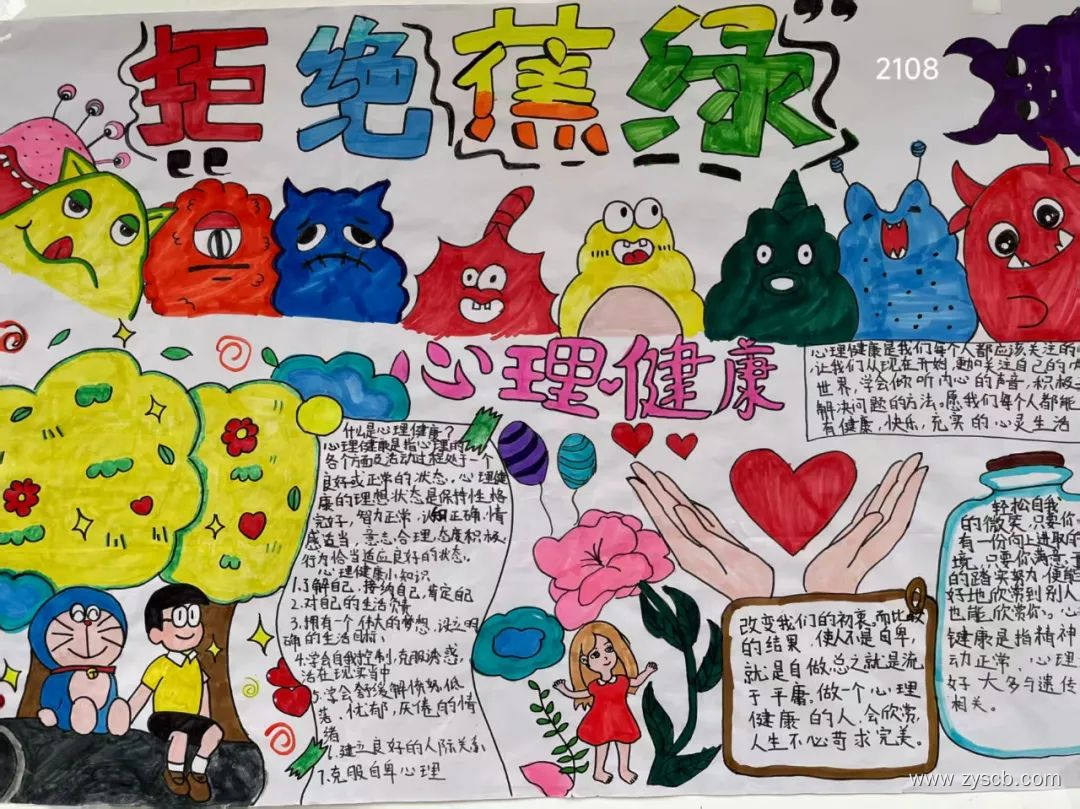 拒绝蕉绿
2108
心理健康
心理健康是我们每个人都应该关注的
让我们从现在开始,关注自己的内
世界,学会倾听内心的声音,积极
解决问题的方法。愿我们每个人都能
有健康,快乐,充实的心灵生活
什么是心理健康?
心理健康是指心理的
各个方面及活动过程处于一个
良好或正常的状态。心理健
康的理想状态是保持性格
完好,智力正常,认知正确,情
感适当,意志合理,态度积极,
行为恰当适应良好的状态。
心理健康小知识
1.了解自己,接纳自己,肯定自己
2.对自己的生活负责
3.拥有一个伟大的梦想,设立明
确的生活目标、
4.学会自我控制,克服诱惑,
活在现实当中
5.学会舒缓解情绪,低
落、忧郁,厌倦的情
绪
6.建立良好的人际关系
7.克服自卑心理
改变我们的初衷,而比较
的结果,使人不是自卑,
就是自傲总之就是流
于平庸。做一个心理
健康的人,会欣赏,
人生不必苛求完美。
轻松自我
的微笑,只要你
有一份向上进取的
境,只要你满意于
的踏实努力,便能
好地欣赏到别人
也能欣赏你。心
健康是指精神
动正常,心理
好,大多与遗传
相关。
www.zyscb.com